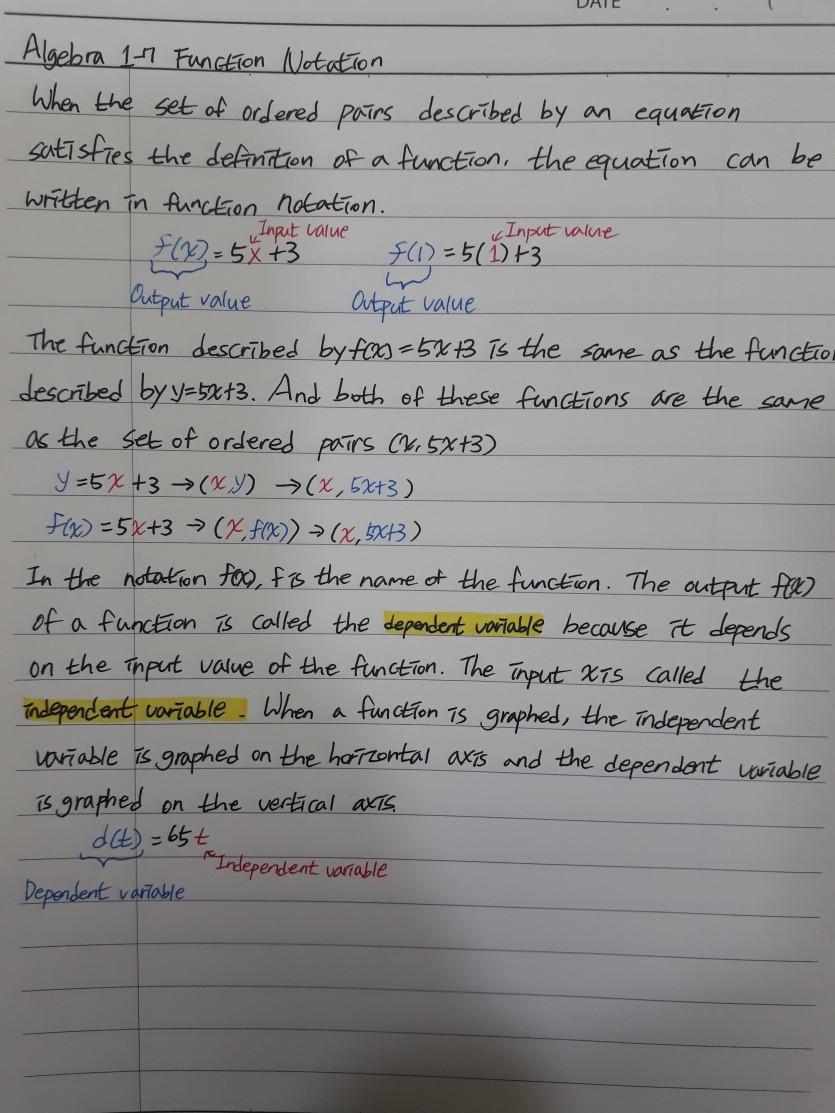 DATE . . (
Algebra 1-7 Function Notation
When the set of ordered pairs described by an equation
satisfies the definition of a function, the equation can be
written in function notation.
Input value Input value
f(x) = 5x+3 f(1) = 5(1)+3
Output value Output value
The function described by f(x)=5x+3 is the same as the functio
described by y=5x+3. And both of these functions are the same
as the set of ordered pairs (x, 5x+3)
y=5x+3 →(x,y) →(x, 5x+3)
f(x) = 5x+3 → (x, f(x)) → (x, 5x+3)
In the notation f(x), f is the name of the function. The output f(x)
of a function is called the dependent variable because it depends
on the input value of the function. The input x is called the
independent variable. When a function is graphed, the independent
variable is graphed on the horizontal axis and the dependent variable
is graphed on the vertical axis.
d(t) = 65t
Independent variable
Dependent variable